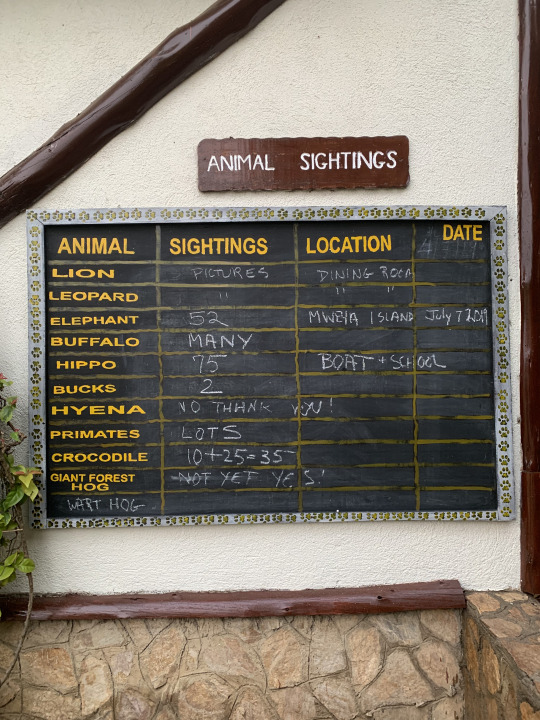 ANIMAL SIGHTINGS
ANIMAL SIGHTINGS LOCATION DATE
LION PICTURES DINING ROOM
LEOPARD " " " "
ELEPHANT 52 MWEYA ISLAND July 7 2019
BUFFALO MANY
HIPPO 75 BOAT + SCHOOL
BUCKS 2
HYENA NO THANK YOU!
PRIMATES LOTS
CROCODILE 10+25=35
GIANT FOREST HOG NOT YET YES!
WART HOG